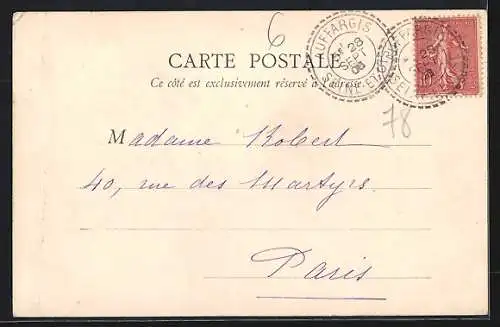 6
CARTE POSTALE
Ce côté est exclusivement réservé à l'adresse.
AUFFARGIS
28
SEINE-ET-OISE
78
Madame Robert
40, rue des Martyrs
Paris